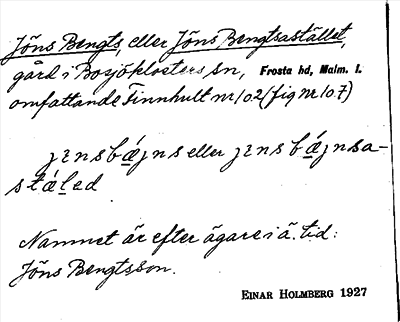 Jöns Bengts, eller Jöns Bengtsastället,
gård i Bosjöklosters sn, Frosta hd, Malm. l.
omfattande Finnhult nr 102 (fig nr 107)
jɪnsbǽjns eller jɪnsbǽjnsa-
stǽled
Namnet är efter ägare i ä. tid:
Jöns Bengtsson.
EINAR HOLMBERG 1927